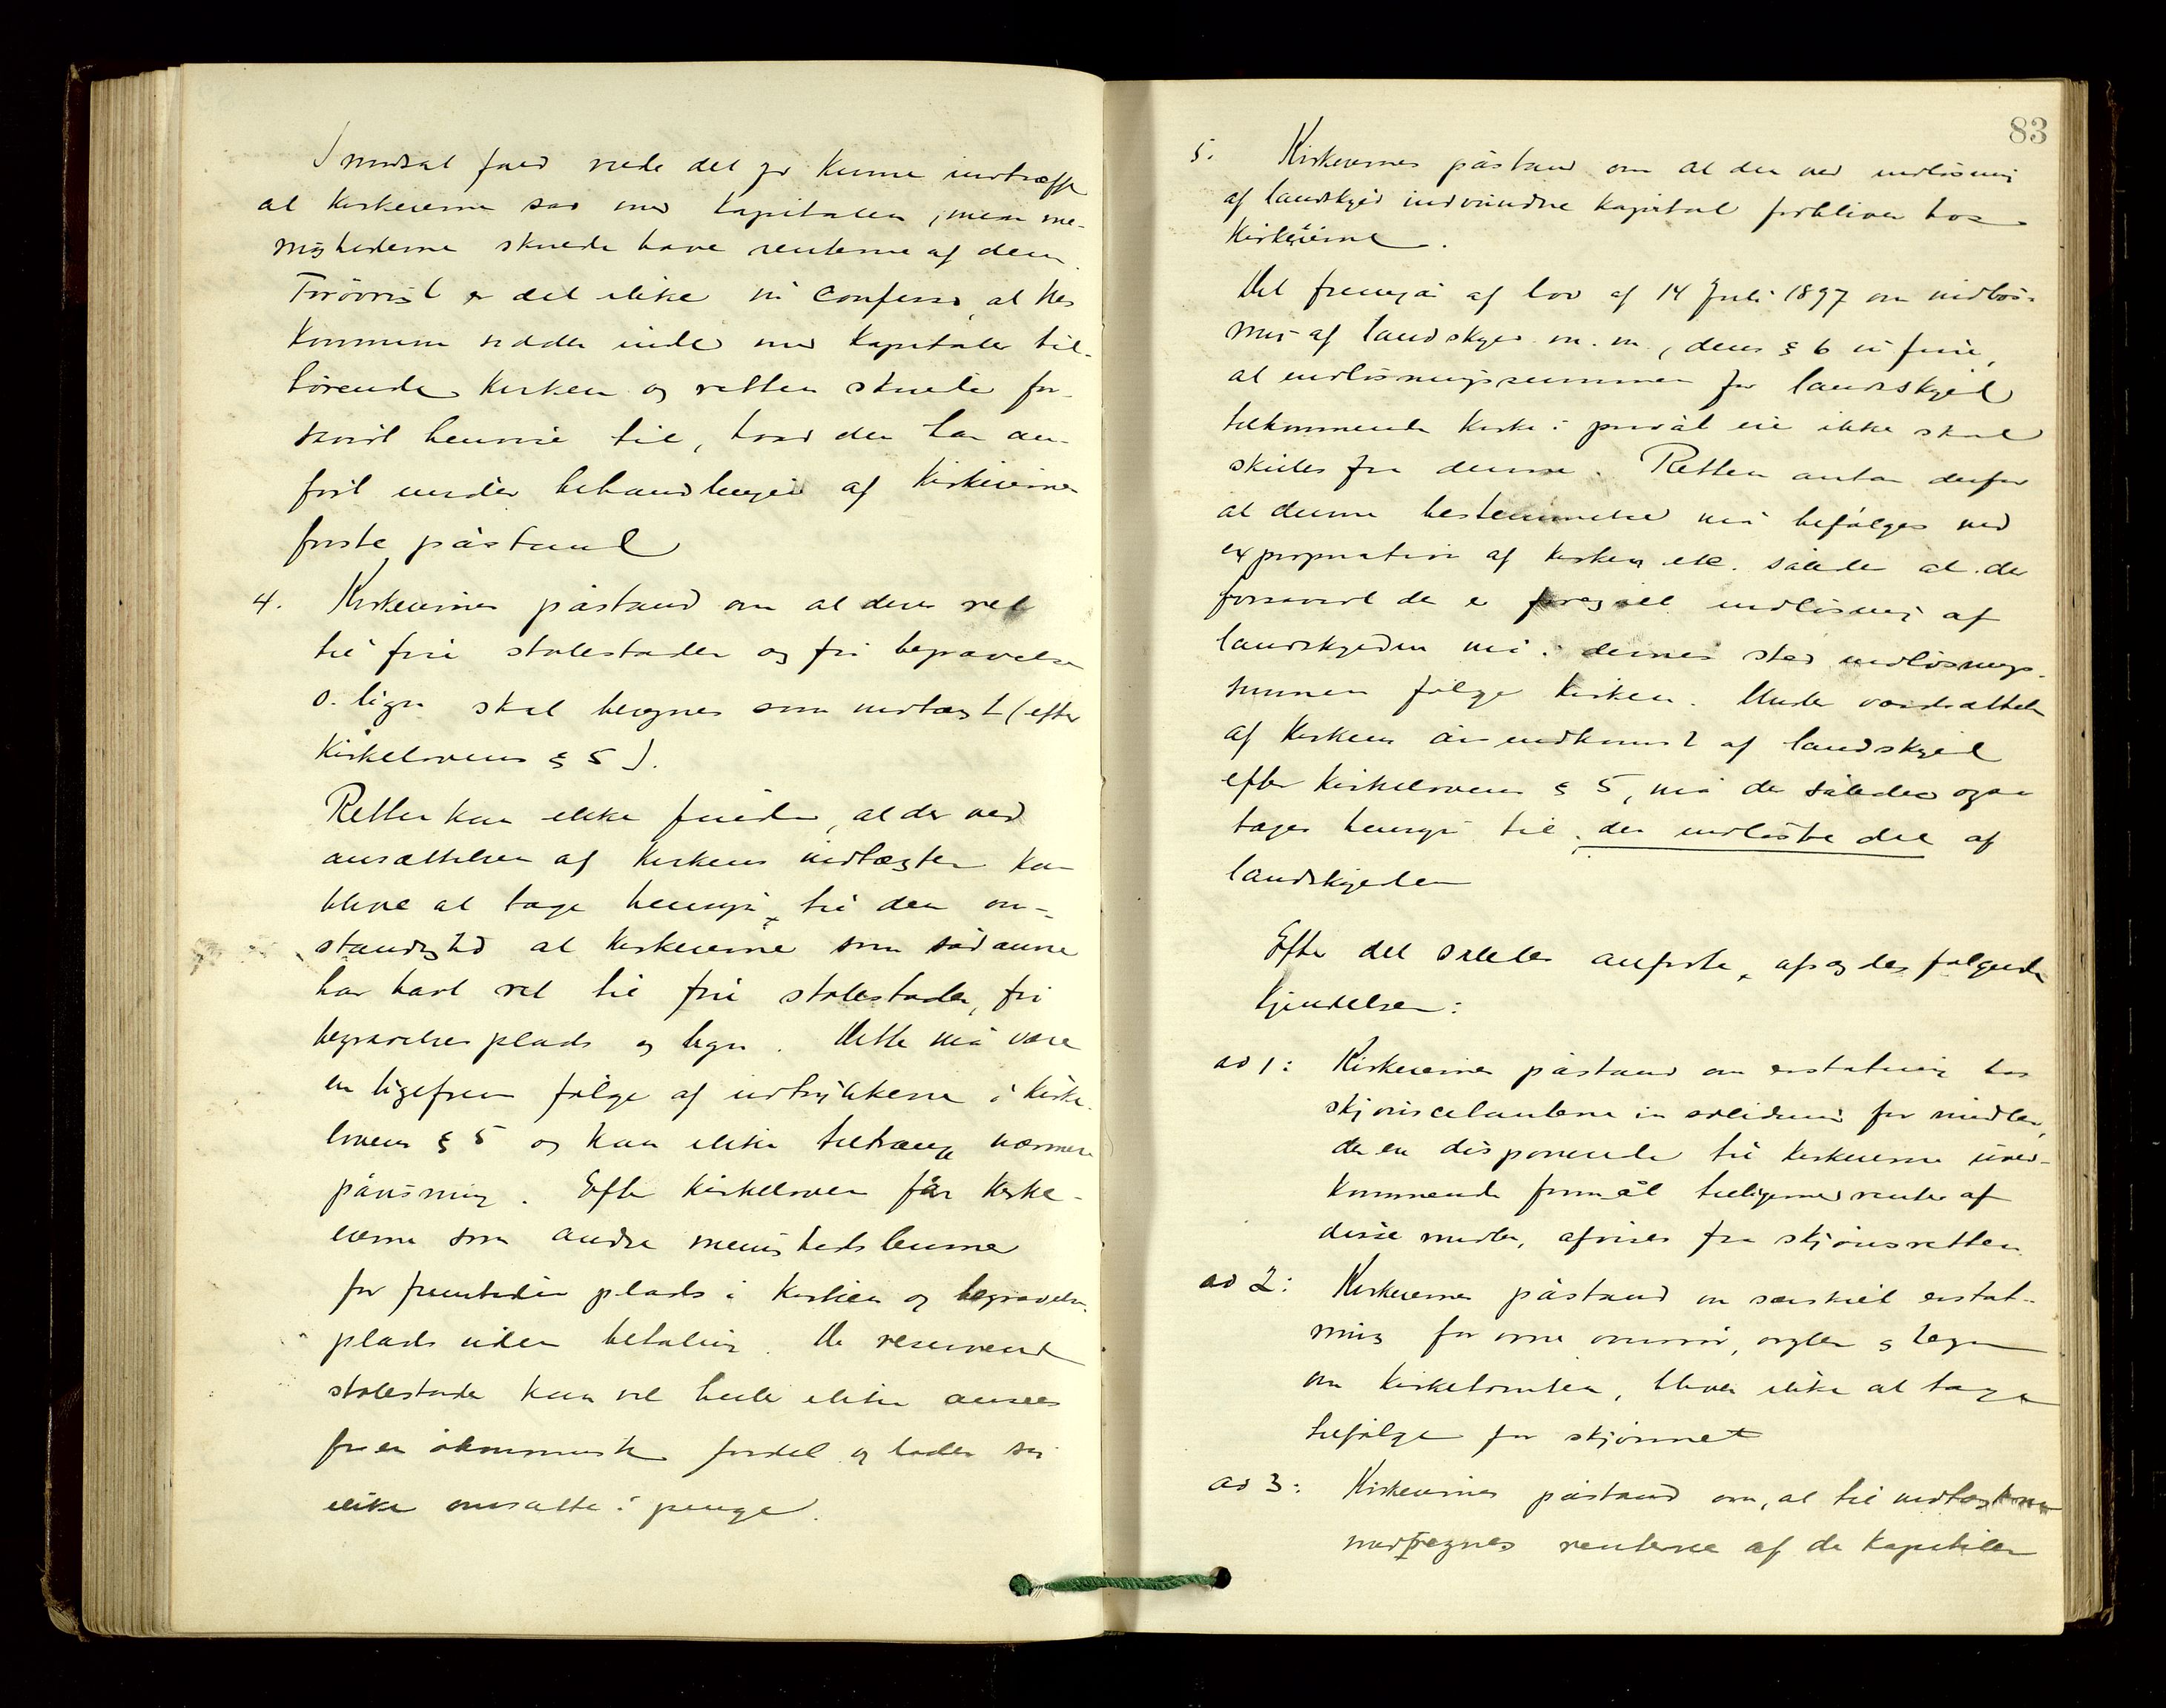 I modsat fald vilde det jo kunne indtræffe
at kirkeierne sad med kapitalen, mens me-
nighederne skulde have renterne af den.
Forøvrigt er det ikke in confesso, at Nes
kommune sidder inde med kapitaler til-
hørende kirken og retten skulde for-
såvidt henvise til, hvad den har an-
ført under behandlingen af kirkeiernes
første påstand
4. Kirkeiernes påstand om at deres ret
til frie stolestader og fri begravelse
o. lign. skal beregnes som indtægt (efter
Kirkelovens § 5).
Retten kan ikke finde, at der ved
ansættelsen af kirkens indtægter kan
blive at tage hensyn til den om-
stændighed at kirkeierne som sådanne
har havt ret til frie stolestader, fri
begravelsesplads og lign. Dette må være
en ligefrem følge af udtrykkene i kirke-
lovens § 5 og kan ikke tiltrænge nærmere
påvisning. Efter kirkeloven får kirke-
eierne som andre menighedslemmer
for fremtiden plads i kirken og begravelses-
plads uden betaling. De reserverede
stolestader kan vel heller ikke ansees
for en økonomisk fordel og lader sig
ikke omsætte i penge.
83
5. Kirkeiernes påstand om at den ved indløsning
af landskyld indvundne kapital forbliver hos
kirkeierne.
Det fremgår af lov af 14 Juli 1897 om indløs-
ning af landskyld m. m., dens § 6 in fine,
at indløsningssummen for landskyld
tilkommende kirke i privat eie ikke skal
skilles fra denne. Retten antar derfor
at denne bestemmelse må befølges ved
expropriation af kirken etc. således at der
forsåvidt der er foregået indløsning af
landskylden må i dennes sted indløsnings-
summen følge kirken. Under værdsættelsen
af kirkens årsindkomst af landskyld
efter kirkelovens § 5, må der således også
tages hensyn til den indløste del af
landskylden
Efter det således anførte, afsagdes følgende
kjendelser:
ad 1: Kirkeiernes påstand om erstatning hos
skjønscitanterne in solidum for midler,
der er disponerede til kirkeierne uved-
kommende formål tilligemed renter af
disse midler, afvises fra skjønsretten.
ad 2: Kirkeiernes påstand om særskilt erstat-
ning for ovne ovnsrør, orglet og hegn
om kirketomten, bliver ikke at tage
tilfølge for skjønnet
ad 3: Kirkeiernes påstand om, at til indtægterne
medregnes renterne af de kapitaler